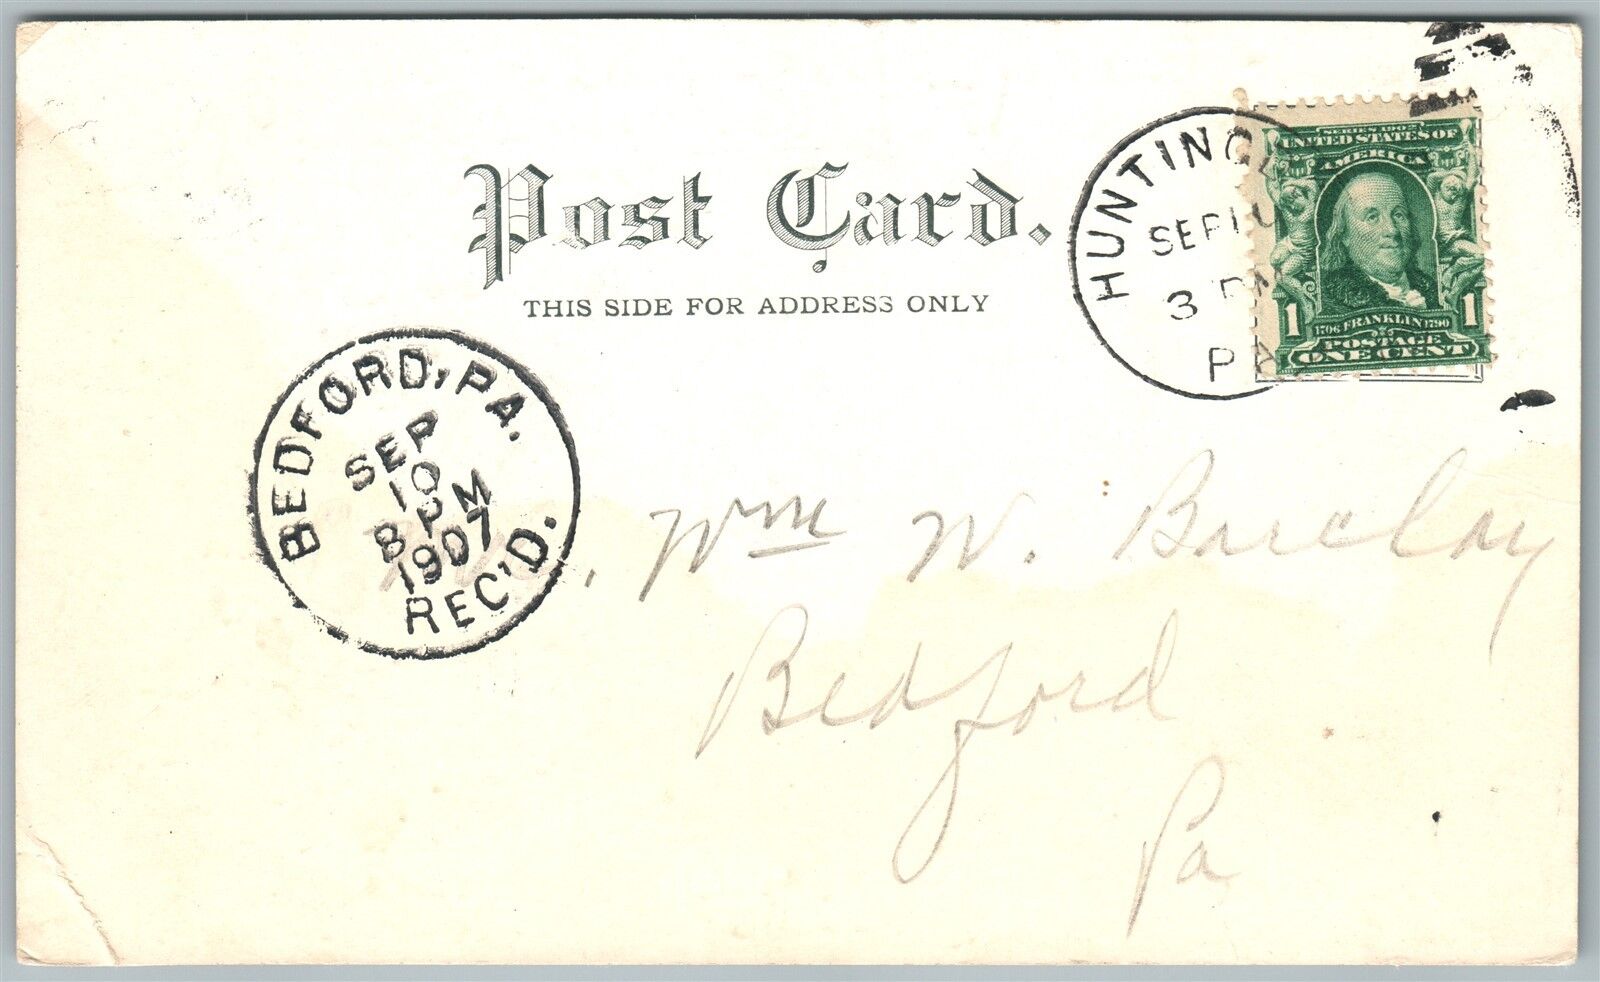 Post Card.
THIS SIDE FOR ADDRESS ONLY
HUNTING
SEP 10
3 PM
PA
SERIES 1902
UNITED STATES OF
AMERICA
1 1
1706 FRANKLIN 1790
POSTAGE
ONE CENT
BEDFORD, PA.
SEP
10
8 PM
1907
REC'D.
Wm W. Barclay
Bedford
Pa